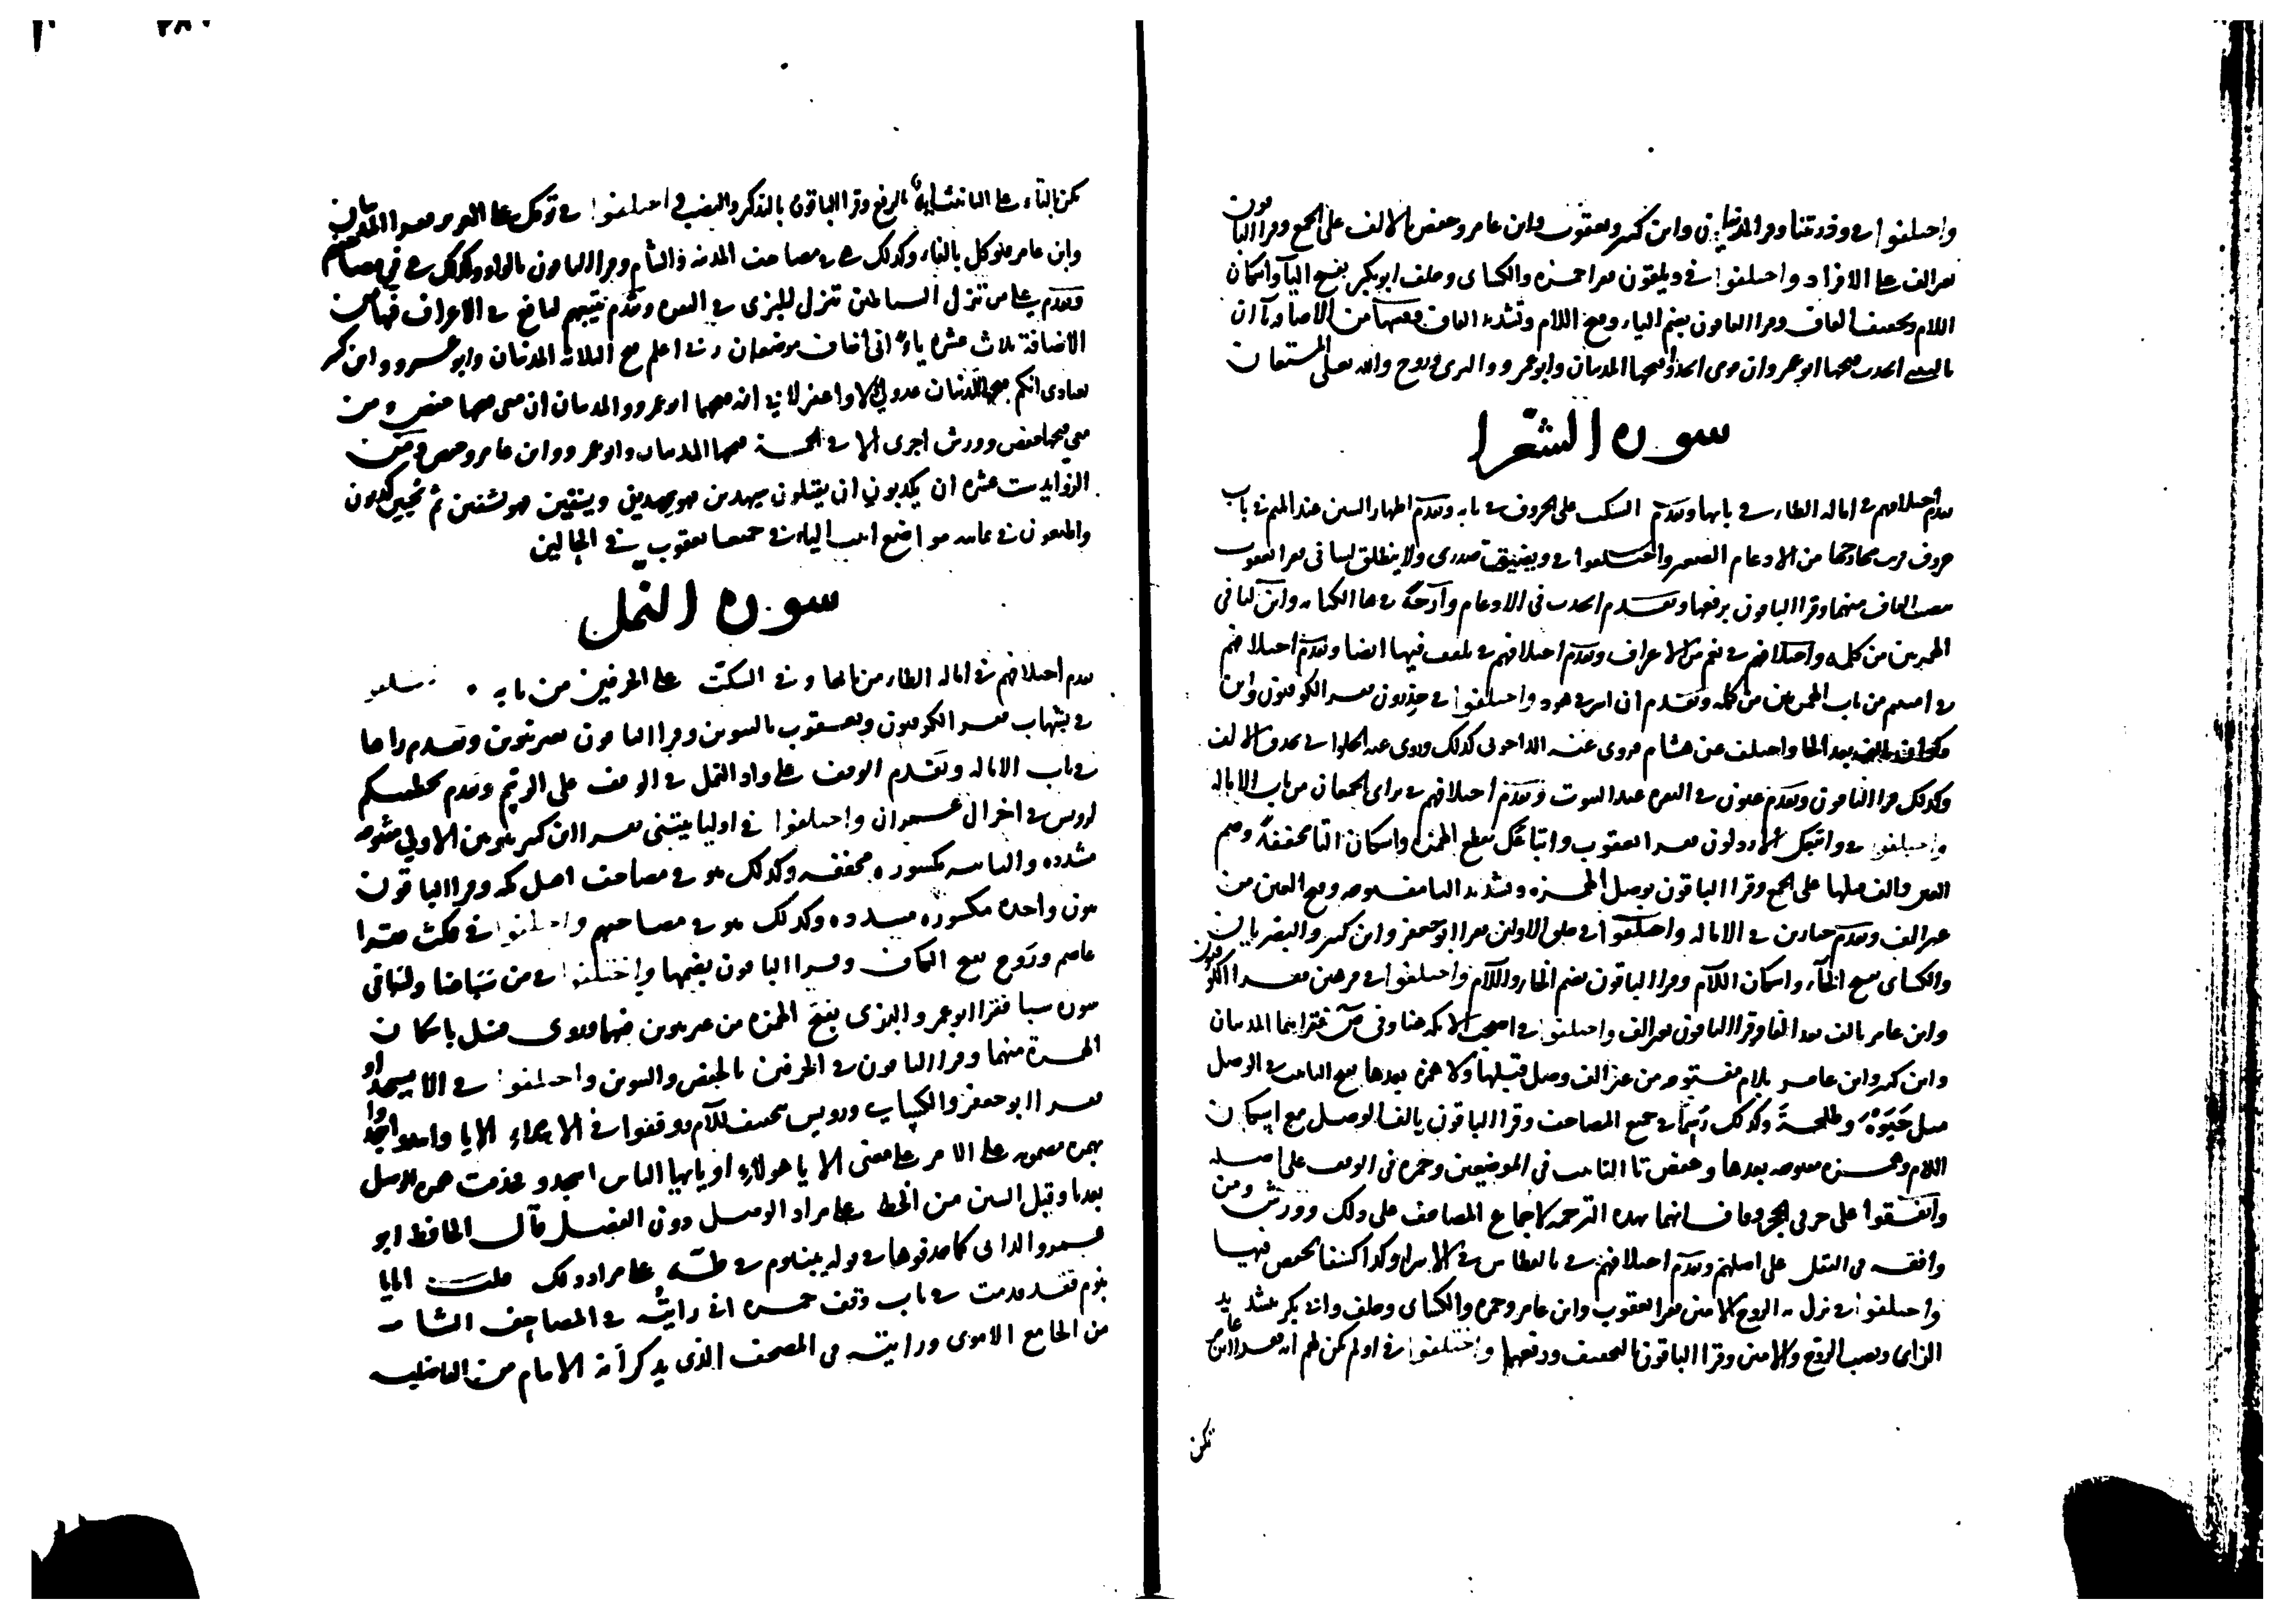 واختلفوا في وذريتنا وقرا المدنيان وابن كثير ويعقوب وابن عامر وحفص بالالف على الجمع وقرا الباقون
بغير الف على الافراد واختلفوا في ويلقون فقرا حمزه والكسائى وخلف وابو بكر بفتح اليآ واسكان
اللام وتخفيف القاف وقرا الباقون بضم الياء وفتح اللام وتشديد القاف وفيها من الاضافه يآان
يا ليتنى اتخذت فتحها ابو عمرو ان قومى اتخذوا فتحها المدنيان وابو عمرو والبزى وروح والله تعالى المستعان
سوره الشعرا
تقدم اختلافهم في اماله الطاء في بابها وتقدم السكت على الحروف في بابه وتقدم اظهار السين عند الميم في باب
حروف قربت مخارجها من الادغام الصغير واختلفوا في ويضيق صدرى ولا ينطلق لسانى فقرا يعقوب
بنصب القاف منهما وقرا الباقون برفعها وتقدم اتخذت في الادغام وارجه في ها الكنايه وائن لنا في
الهمزتين من كلمه واختلافهم في نعم في الاعراف وتقدم اختلافهم في تلقف فيها ايضا وتقدم اختلافهم
في امنتم من باب الهمزتين من كلمه وتقدم ان اسر في هود واختلفوا في حذرون فقرا الكوفيون وابن
ذكوان بالف بعد الحا واختلف عن هشام فروى عنه الداجونى كذلك وروى عنه الحلوانى بحذف الالف
وكذلك قرا الباقون وتقدم عيون في البقره عند البيوت وتقدم اختلافهم في تراى الجمعان من باب الاماله
واختلفوا في واتبعك الارذلون فقرا يعقوب واتباعك بقطع الهمزه واسكان التا مخففة وضم
العين والف قبلها على الجمع وقرا الباقون بوصل الهمزه وتشديد التا مفتوحه وفتح العين من
غير الف وتقدم جبارين في الاماله واختلفوا في خلق الاولين فقرا ابو جعفر وابن كثير والبصريان
والكسائى بفتح الخآء واسكان اللام وقرا الباقون بضم الخاء واللام واختلفوا في فرهين فقرا الكوفيون
وابن عامر بالف بعد الفا وقرا الباقون بغير الف واختلفوا في اصحاب الايكه هنا وفى ص فقراهما المدنيان
وابن كثير وابن عامر بلام مفتوحه من غير الف وصل قبلها ولا همزه بعدها بفتح التانيث في الوصل
مثل حيوة وطلحة وكذلك رسما في جميع المصاحف وقرا الباقون بالف الوصل مع اسكان
اللام وهمزه مفتوحه بعدها وخفض تا التانيث في الموضعين وحمزه في الوقف على اصله
واتفقوا على حرفى الحجر وقاف انهما بهذه الترجمه لاجماع المصاحف على ذلك وورش ومن
وافقه في النقل على اصلهم وتقدم اختلافهم في بالقسطاس في الاسراء وكذا كسفا لحفص فيها
واختلفوا في نزل به الروح الامين فقرا يعقوب وابن عامر وحمزه والكسائى وخلف وابو بكر بتشديد
الزاى ونصب الروح والامين وقرا الباقون بالتخفيف ورفعهما واختلفوا في اولم يكن لهم ايه فقرا ابن عامر
تكن
٢٨٠
تكن بالتآء على التانيث اية بالرفع وقرا الباقون بالتذكير والنصب واختلفوا في توكل على العزيز فقرا المدنيان
وابن عامر فتوكل بالفاء وكذلك هى في مصاحف المدينه والشام وقرا الباقون بالواو وكذلك هى في مصاحفهم
وتقدم على من تنزل الشياطين تنزل للبزى في البقره وتقدم يتبعهم لنافع في الاعراف فيها من
الاضافة ثلاث عشره ياءً انى اخاف موضعان ربى اعلم فتح الثلاثة المدنيان وابو عمرو وابن كثير
بعبادى انكم فتحها المدنيان عدو لى الا واغفر لابى انه فتحهما ابو عمرو والمدنيان ان معى فتحها حفص ومن
معى فتحها حفص وورش اجرى الا في الخمسه فتحها المدنيان وابو عمرو وابن عامر وحفص ومن
الزوايد ست عشره ان يكذبون ان يقتلون سيهدين فهو يهدين ويسقين فهو يشفين ثم يحيين كذبون
واطيعون في ثمانيه مواضع اثبت الياء في جميعها يعقوب في الحالين
سوره النمل
تقدم اختلافهم في اماله الطاء من بابها وفى السكت على الحرفين من بابه واختلفوا
في بشهاب فقرا الكوفيون ويعقوب بالتنوين وقرا الباقون بغير تنوين وتقدم راها
في باب الاماله وتقدم الوقف على واد النمل في الوقف على الرسم وتقدم يحطمنكم
لرويس في اخر ال عمران واختلفوا في اوليا تيننى فقرا ابن كثير بنونين الاولى مفتوحه
مشدده والثانيه مكسوره مخففه وكذلك هو في مصاحف اهل مكه وقرا الباقون
بنون واحده مكسوره مشدده وكذلك هو في مصاحفهم واختلفوا في فمكث فقرا
عاصم وروح بفتح الكاف وقرا الباقون بضمها واختلفوا في من سبا هنا ولسبا فى
سوره سبا فقرا ابو عمرو والبزى بفتح الهمزه من غير تنوين فيهما وروى قنبل باسكان
الهمزة منهما وقرا الباقون في الحرفين بالخفض والتنوين واختلفوا في الا يسجدوا
فقرا ابو جعفر والكسائى ورويس بتخفيف اللآم ووقفوا في الابتداء الا يا وابتدوا اسجدوا
بهمزه مضمومه على الامر على معنى الا يا هولاء او يا ايها الناس اسجدوا وحذفت همزه الوصل
بعد يا وقبل السين من الخط على مراد الوصل دون الفصل قآل الحافظ ابو
عمرو الدانى كما حذفوها في قوله يبنؤم في طه على مراد ذلك قلت اما يا
بنوم فقد قدمت في باب وقف حمزه انى رايته في المصاحف الشاميه
من الجامع الاموى ورايته في المصحف الذى يذكر انه الامام من الفاضليه